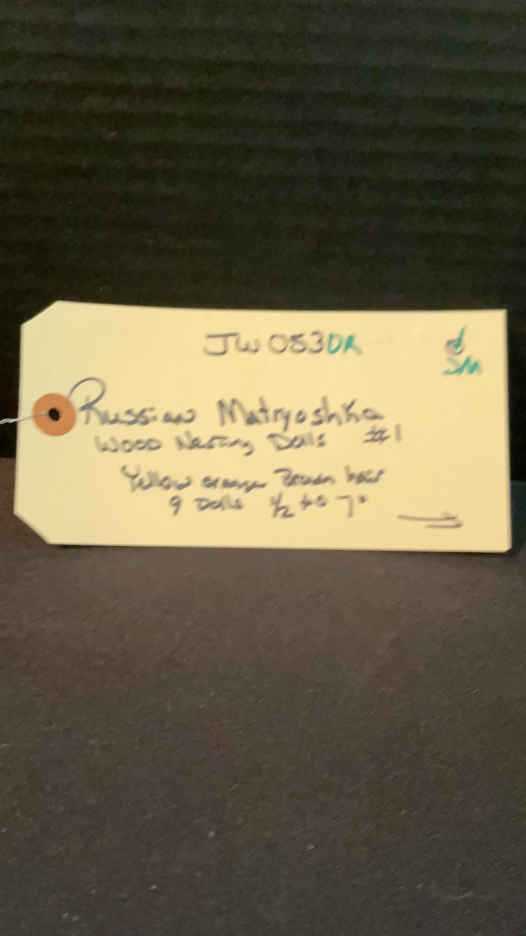 JW053DR
SM
Russian Matryoshka
Wood Nesting Dolls #1
Yellow orange Brown hair
9 Dolls 1/2 to 7"